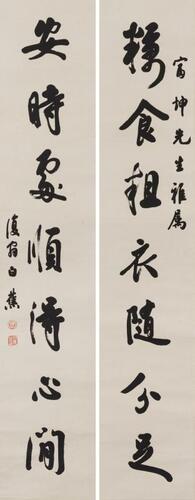 富坤先生雅屬
糲食粗衣隨分足
安時處順得心閒
復翁白蕉